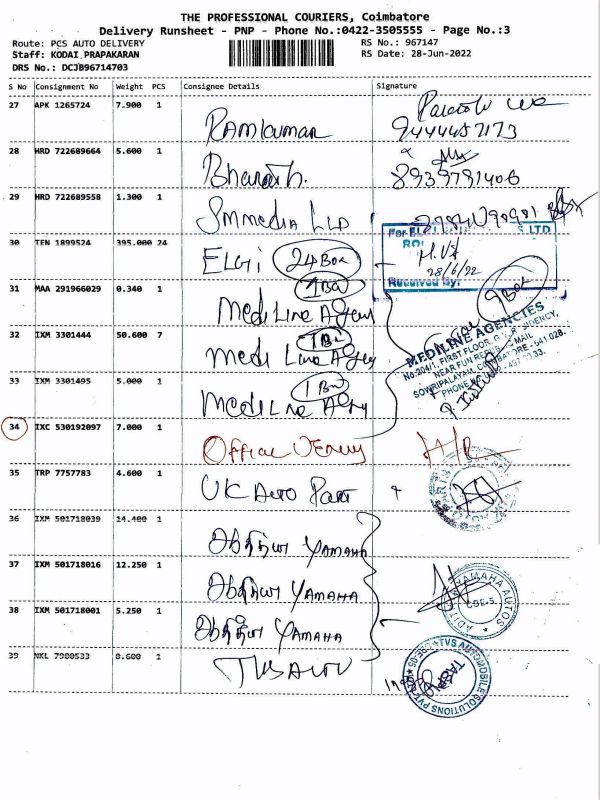 THE PROFESSIONAL COURIERS, Coimbatore
Delivery Runsheet - PNP - Phone No.:0422-3505555 - Page No.:3
Route: PCS AUTO DELIVERY
RS No.: 967147
Staff: KODAI PRAPAKARAN
RS Date: 28-Jun-2022
DRS No.: DCJB96714703
S No Consignment No Weight PCS Consignee Details Signature
27 APK 1265724 7.900 1
Ramkumar 9444457173
28 HRD 722689664 5.600 1
Bharath. 8939791406
29 HRD 722689558 1.300 1
SMMEDIA LLP
30 TEN 1899524 395.000 24
ELGI 24 Box
For ELGI LTD
28/6/22
Received By:
31 MAA 291966029 0.340 1
1 Box
Medi Line Agency
9 Box
32 IXM 3301444 50.600 7
Medi Line Agency
MEDILINE AGENCIES
No.204/1, FIRST FLOOR,
NEAR FUN MALL
SOWRIPALAYAM, COIMBATORE - 641 028.
PHONE
33 IXM 3301495 5.000 1
Medi Line Agency
34 IXC 530192097 7.000 1
35 TRP 7757783 4.600 1
UK Auto Part
36 IXM 501718039 14.400 1
ஆதித்யா YAMAHA
37 IXM 501718016 12.250 1
ஆதித்யா YAMAHA
CBE-5.
38 IXM 501718001 5.250 1
ஆதித்யா YAMAHA
39 NKL 7900533 0.600 1
TVS AUTO
TVS AUTOMOBILE SOLUTIONS PVT